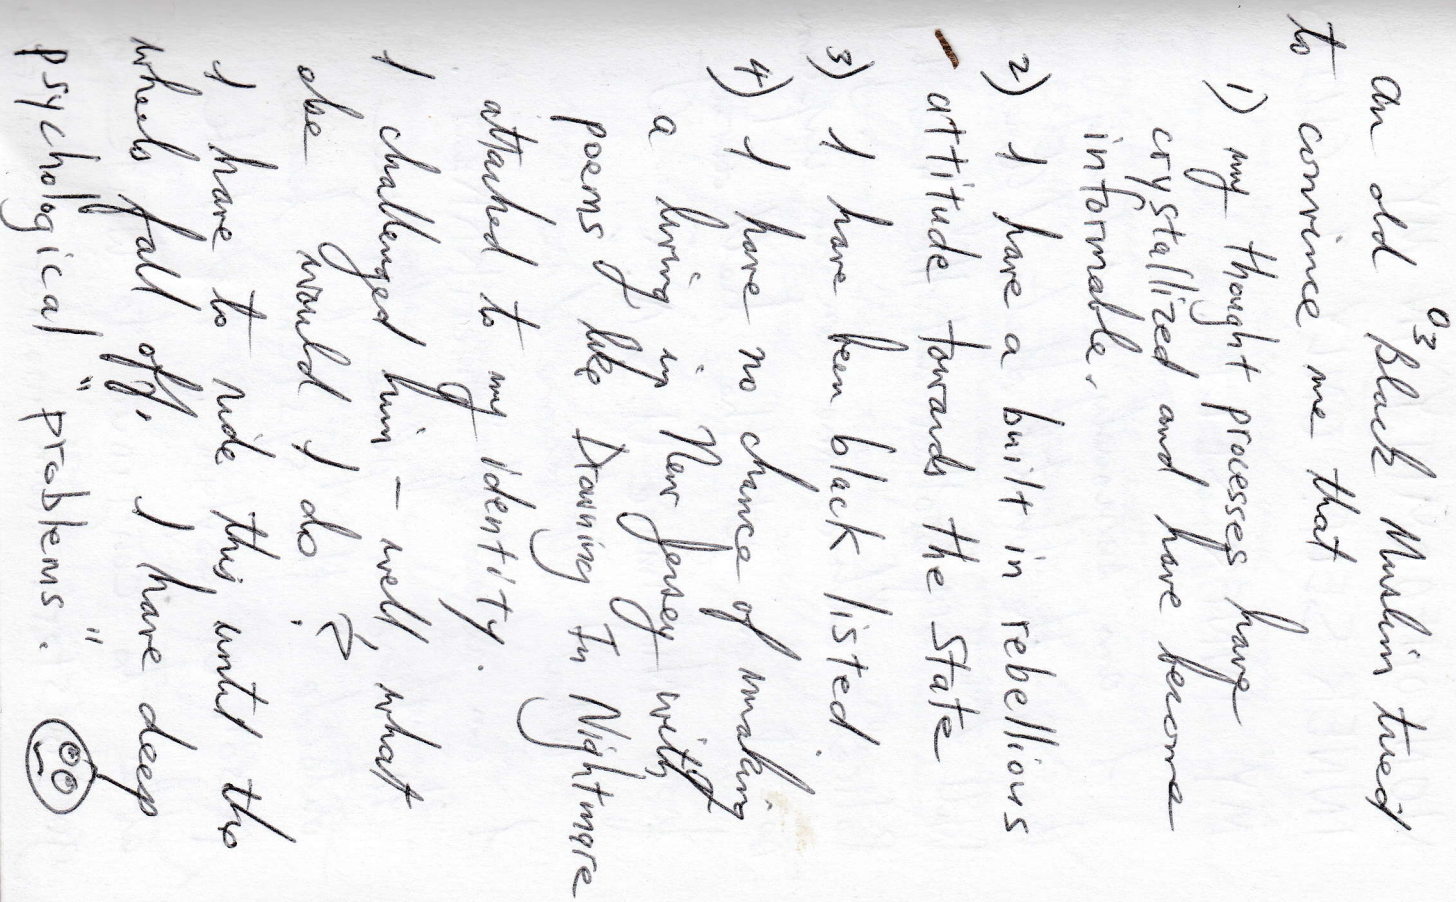 03
An old Black Muslim tried
to convince me that
1) my thought processes have
crystallized and have become
informable.
2) I have a built in rebellious
attitude towards the State
3) I have been black listed
4) I have no chance of making
a living in New Jersey with
poems like Drowning In Nightmare
attached to my identity.
I challenged him - well, what
else would I do?
I have to ride this until the
wheels fall off. I have deep
psychological "problems."